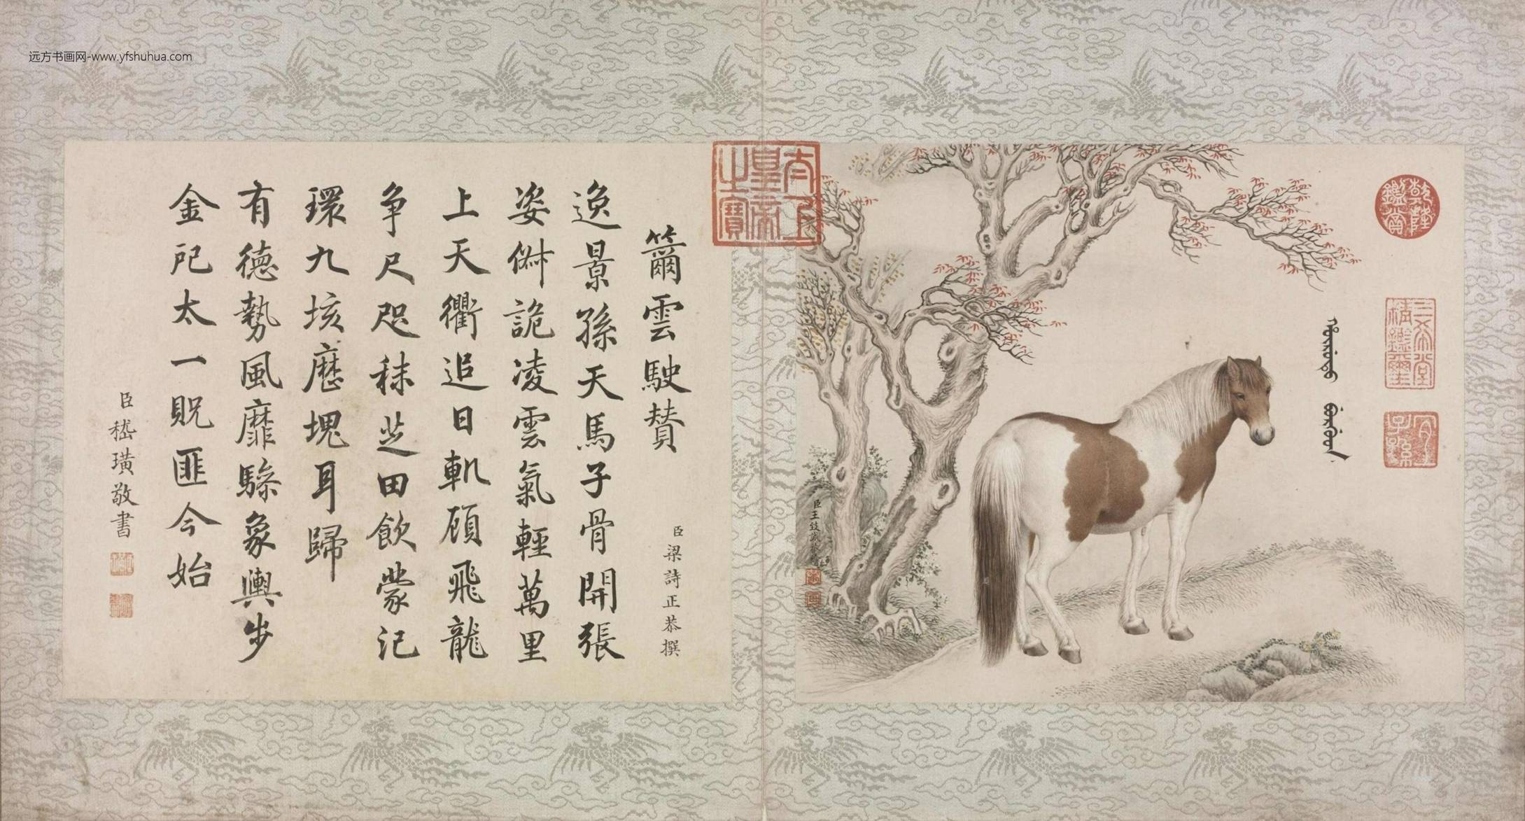 远方书画网-www.yfshuhua.com
籋雲駛贊
臣梁詩正恭撰
逸景孫天馬子骨開張
姿倜詭凌雲氣輕萬里
上天衢追日軌頋飛龍
争尺咫秣芝田飲蒙汜
環九垓歷塊耳歸
有德勢風靡騄象輿步
金戺太一貺匪今始
臣嵇璜敬書
太上皇帝之寶
乾隆鑑賞
三希堂精鑑璽
宜子孫